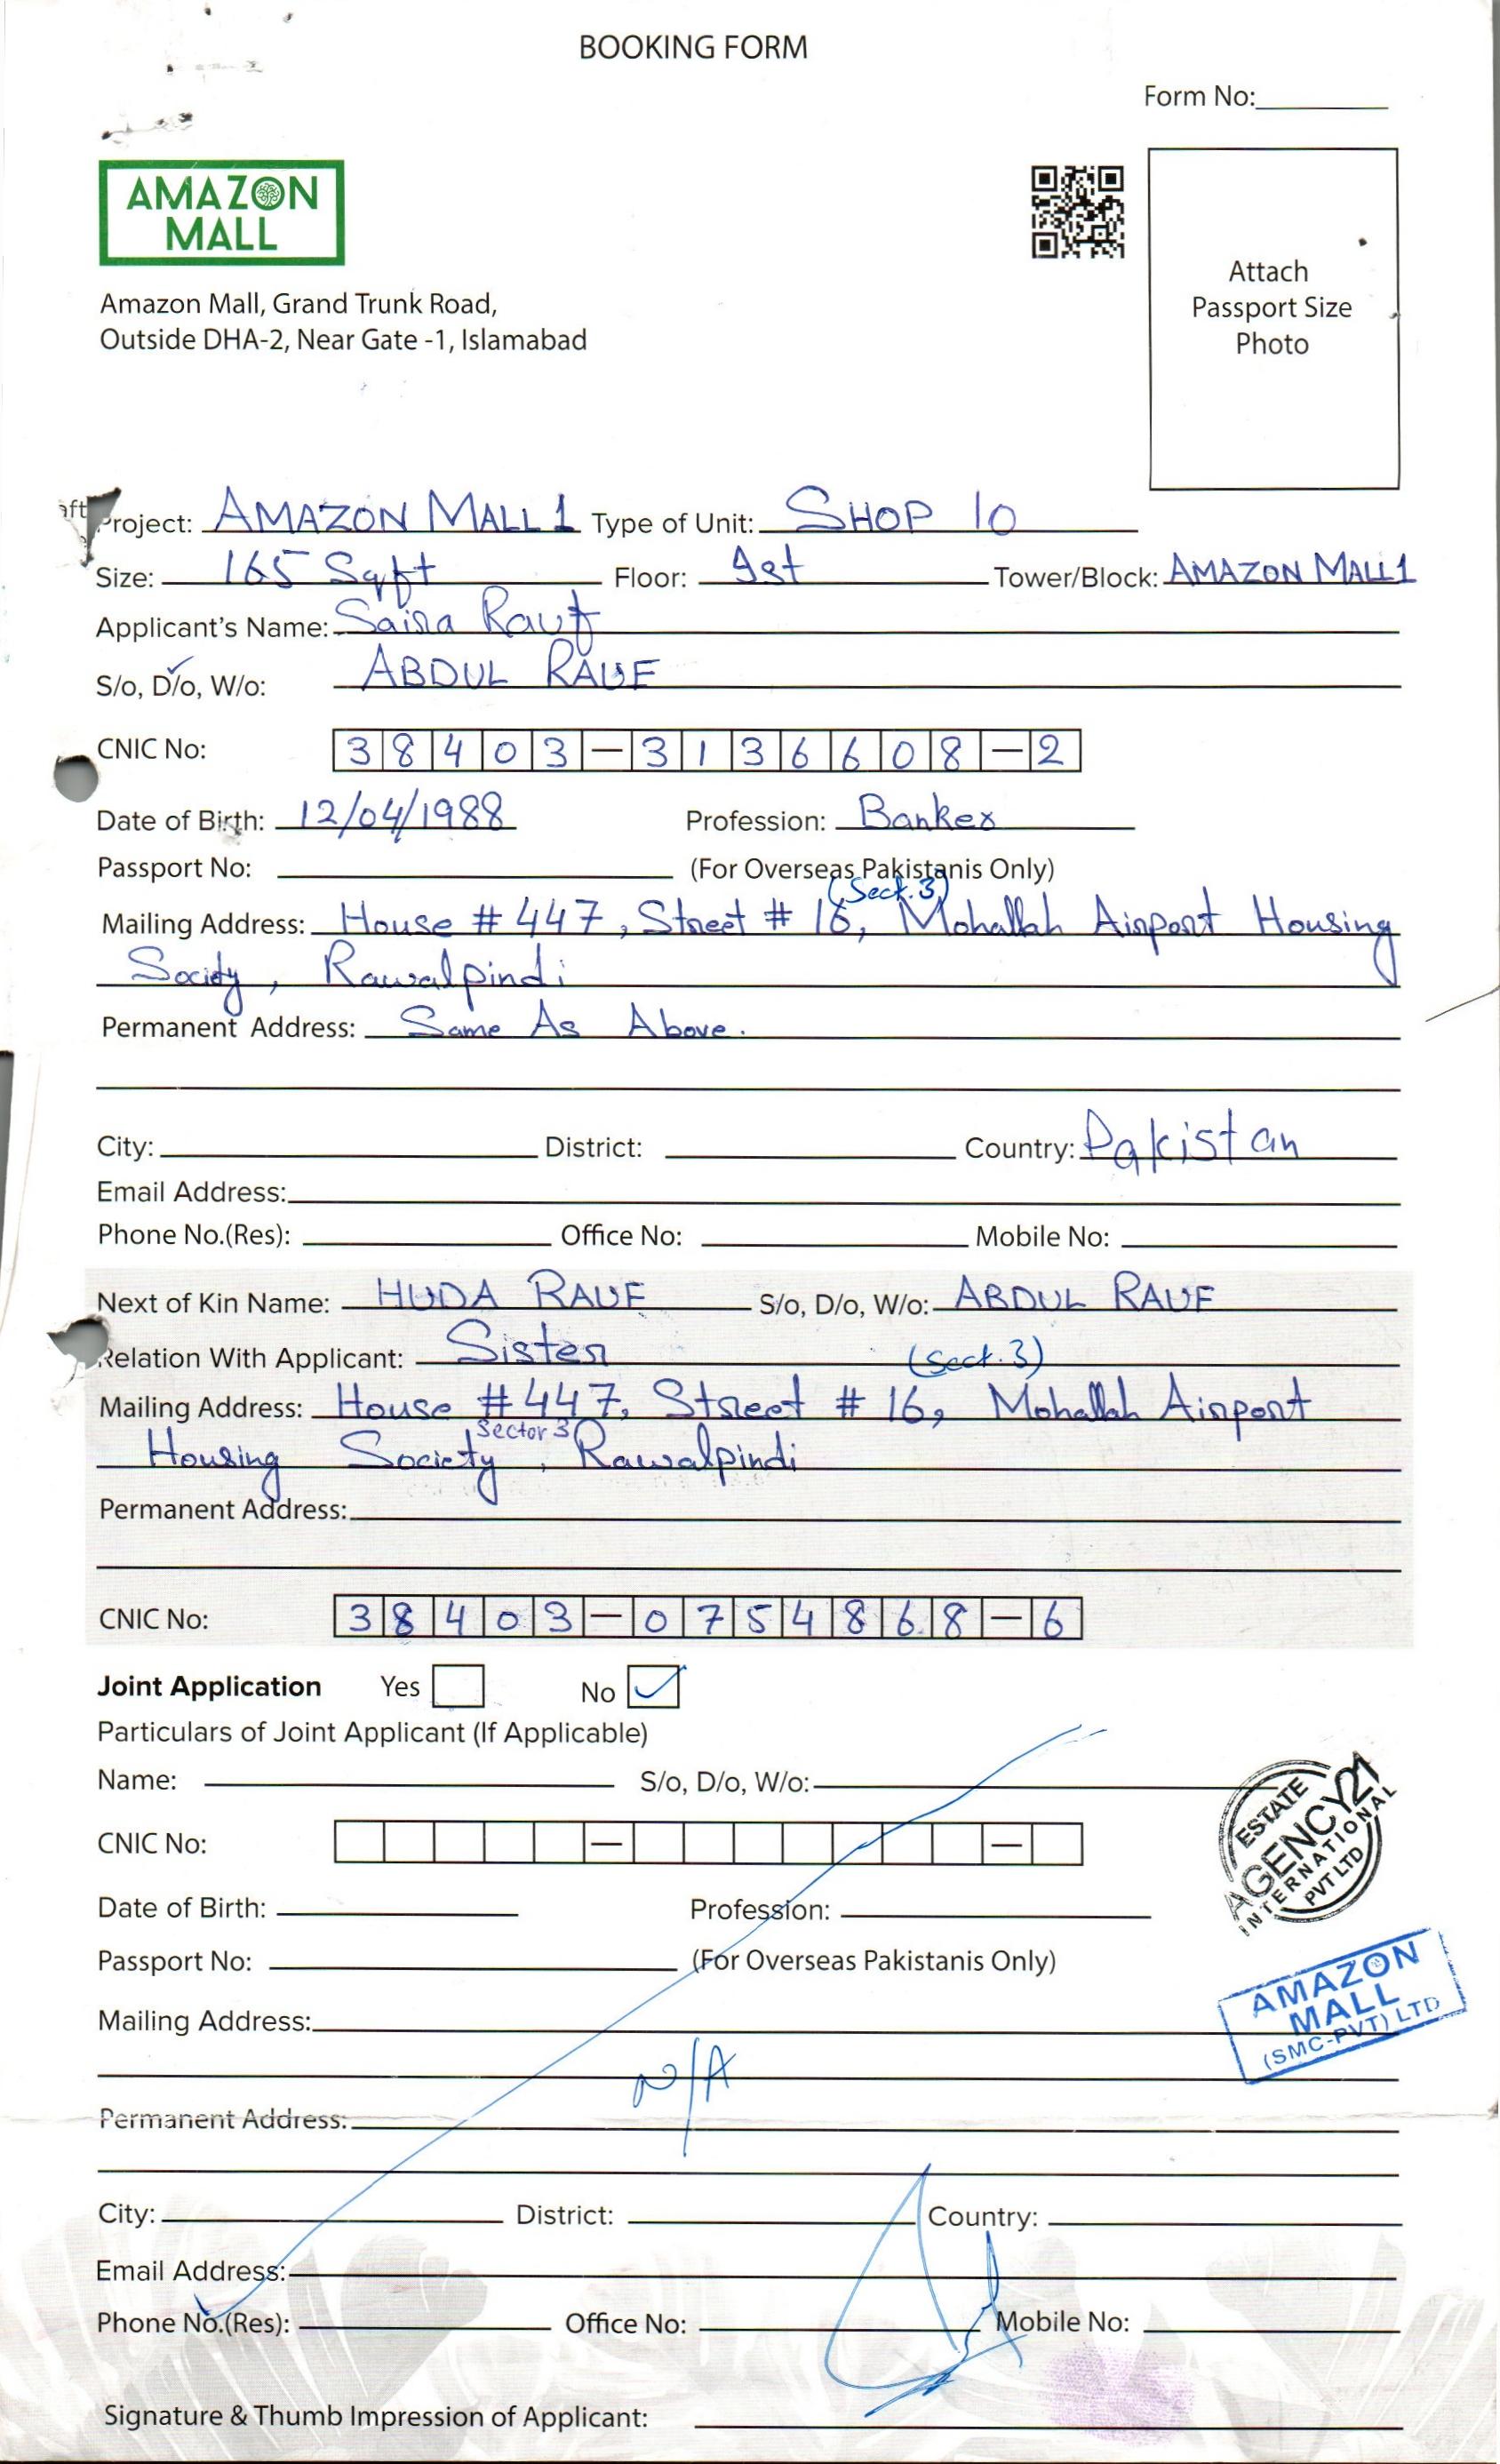 BOOKING FORM
Form No:
AMAZON
MALL
Attach
Passport Size
Photo
Amazon Mall, Grand Trunk Road,
Outside DHA-2, Near Gate -1, Islamabad
aft
Project: AMAZON MALL 1 Type of Unit: SHOP 10
Size: 165 Sqft Floor: 1st Tower/Block: AMAZON MALL 1
Applicant's Name: Saira Rauf
S/o, D/o, W/o: ABDUL RAUF
CNIC No: 38403-3136608-2
Date of Birth: 12/04/1988 Profession: Banker
Passport No: (For Overseas Pakistanis Only)
(Sect. 3)
Mailing Address: House # 447, Street # 16, Mohallah Airport Housing
Society, Rawalpindi
Permanent Address: Same As Above.
City: District: Country: Pakistan
Email Address:
Phone No.(Res): Office No: Mobile No:
Next of Kin Name: HUDA RAUF S/o, D/o, W/o: ABDUL RAUF
Relation With Applicant: Sister (Sect. 3)
Mailing Address: House # 447, Street # 16, Mohallah Airport
Sector 3
Housing Society, Rawalpindi
Permanent Address:
CNIC No: 38403-0754868-6
Joint Application Yes No
Particulars of Joint Applicant (If Applicable)
Name: S/o, D/o, W/o:
ESTATE
AGENCY21
INTERNATIONAL
PVT LTD
CNIC No: - -
Date of Birth: Profession:
Passport No: (For Overseas Pakistanis Only)
AMAZON
MALL
(SMC-PVT) LTD
Mailing Address:
N/A
Permanent Address:
City: District: Country:
Email Address:
Phone No.(Res): Office No: Mobile No:
Signature & Thumb Impression of Applicant: